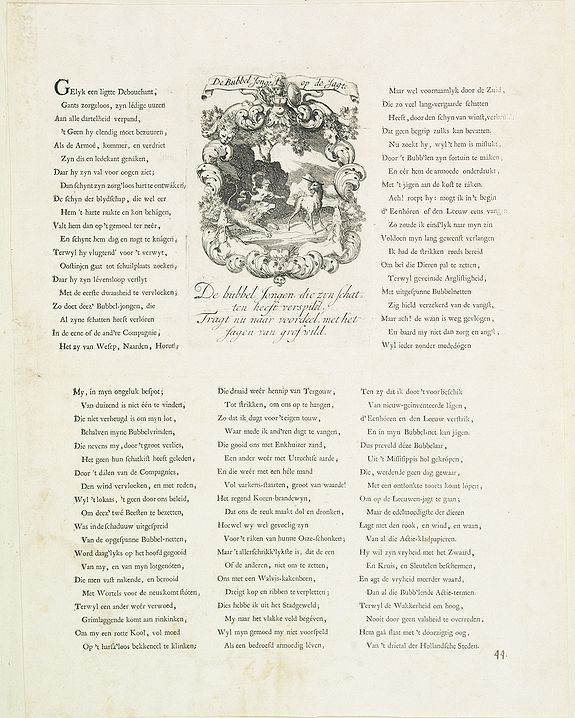 De Bubbel Jonge op de Jagt.
GElyk een ligtte Debouchant,
Gants zorgeloos, zyn lédige uuren
Aan alle dartelheid verpand,
't Geen hy elendig moet bezuuren;
Als de Armoê, kommer, en verdriet
Zyn dis en ledekant genaken,
Daar hy zyn val voor oogen ziet;
Dan schynt zyn zorg'loos hart te ontwaken,
De schyn der blydschap, die wel eer
Hem 't harte raakte en kon behagen,
Valt hem dan op 't gemoed ter neêr,
En schynt hem dag en nagt te knagen,
Terwyl hy vlugtend' voor 't verwyt,
Oostinjen gaat tot schuilplaats zoeken,
Daar hy zyn lévensloop verslyt
Met de eerste dwaasheid te vervloeken;
Zo doet deez' Bubbel-jongen, die
Al zyne schatten heeft verlóren
In de eene of de and're Compagnie,
Het zy van Wesep, Naarden, Horen,
De bubbel Jongen, die zyn schat-
ten heeft verspild,
Tragt nu naar voordeel, met het
Jagen van grof wild.
Maar wel voornamlyk door de Zuid,
Die zo veel lang-vergaarde schatten
Heeft, door den schyn van winst,
Dat geen begrip zulks kan bevatten.
Nu zoekt hy, wyl 't hem is mislukt,
Door 't Bubb'len zyn fortuin te maken,
En eêr hem de armoede onderdrukt,
Met 't jagen aan de kost te ráken.
Ach! roept hy: mogt ik in 't begin
d' Eenhóren of den Leeuw eens
Zo zoude ik eind'lyk naar myn zin
Voldoen myn lang gewenst verlangen
Ik had de strikken reeds bereid
Om bei die Dieren pal te zetten,
Terwyl geveinsde Arglistigheid,
Met uitgespanne Bubbelnetten
Zig hield verzekerd van de vangst,
Maar ach! de waan is weg gevlógen,
En baard my niet dan zorg en angst,
Wyl ieder zonder mededógen
My, in myn ongeluk bespot;
Van duizend is niet één te vinden,
Die niet verheugd is om myn lot,
Behalven myne Bubbelvrinden,
Die nevens my, door 't groot verlies,
Het geen hun schatkist heeft geleden,
Door 't dálen van de Compagnies,
Den wind vervloeken, en met reden,
Wyl 't lokaas, 't geen door ons beleid,
Om deez' twé Beesten te bezetten,
Was in de schaduuw uitgespreid
Van de opgespanne Bubbel-netten,
Word daag'lyks op het hoofd gegooid
Van my, en van myn lotgenóten,
Die men vast nakende, en berooid
Met Wortels voor de neus komt stóten,
Terwyl een ander weêr verwoed,
Grimlaggende komt aan rinkinken,
Om my een rotte Kool, vol moed
Op 't harsa'loos bekkeneel te klinken,
Die draaid weêr hennip van Tergouw,
Tot strikken, om ons op te hangen,
Zo dat ik dugt voor 't eigen touw,
Waar mede ik and'ren dagt te vangen,
Die gooid ons met Enkhuizer zand,
Een ander weêr met Utrechtse aarde,
En die weêr met een héle mand
Vol varkens-staarten, groot van waarde!
Het regend Koren-brandewyn,
Dat ons de reuk maakt dol en dronken,
Hoewel wy wel gevoelig zyn
Voor 't ráken van hunne Ooze-schonken;
Maar 't allerschrikk'lykste is, dat de een
Of de anderen, niet om te zetten,
Ons met een Walvis-kakenbeen,
Dreigt kop en ribben te verpletten;
Dies hebbe ik uit het Stadgeweld,
My naar het vlakke veld begéven,
Wyl myn gemoed my niet voorspeld
Als een bedroefd armoedig léven,
Ten zy dat ik door 't voorbeschik
Van nieuw-geinventeerde lágen,
d' Eenhóren en den Leeuw verstrik,
En in myn Bubbel-net kan jágen.
Dus preveld déze Bubbelaar,
Uit 't Missisippis hol gekrópen,
Die, werdende geen dag gewaar,
Met een ontstokte toorts komt lópen,
Om op de Leeuwen-jagt te gaan;
Maar de edelmoedigste der dieren
Lagt met den rook, en wind, en waan,
Van al die Actie-kladpapieren.
Hy wil zyn vryheid met het Zwaard,
En Kruis, en Sleutelen beschermen,
En agt de vryheid meerder waard,
Dan al die Bubb'lende Actie-termen.
Terwyl de Wakkerheid om hoog,
Nooit door geen valsheid te overreden,
Hem gaê slaat met 't doorzigtig oog,
Van 't drietal der Hollandsche Steden.
44.